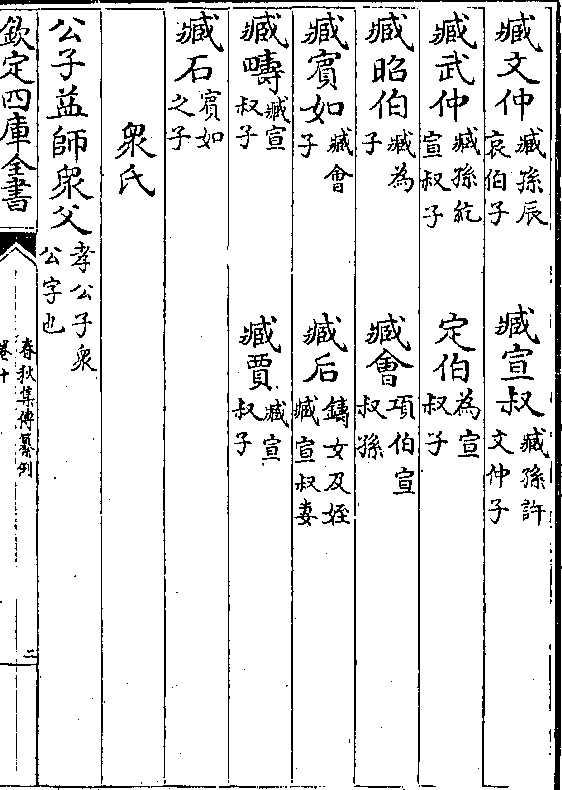 臧文仲臧孫辰哀伯子　臧宣叔臧孫許文仲子
臧武仲臧孫紇宣叔子　定伯為宣叔子
臧昭伯臧為子　臧會項伯宣叔孫
臧賓如臧會子　臧后鑄女及姪臧宣叔妻
臧疇臧宣叔子　臧賈臧宣叔子
臧石賓如之子
衆氏
公子益師衆父孝公子衆公字也
欽定四庫全書
春秋集傳纂例
卷十
二